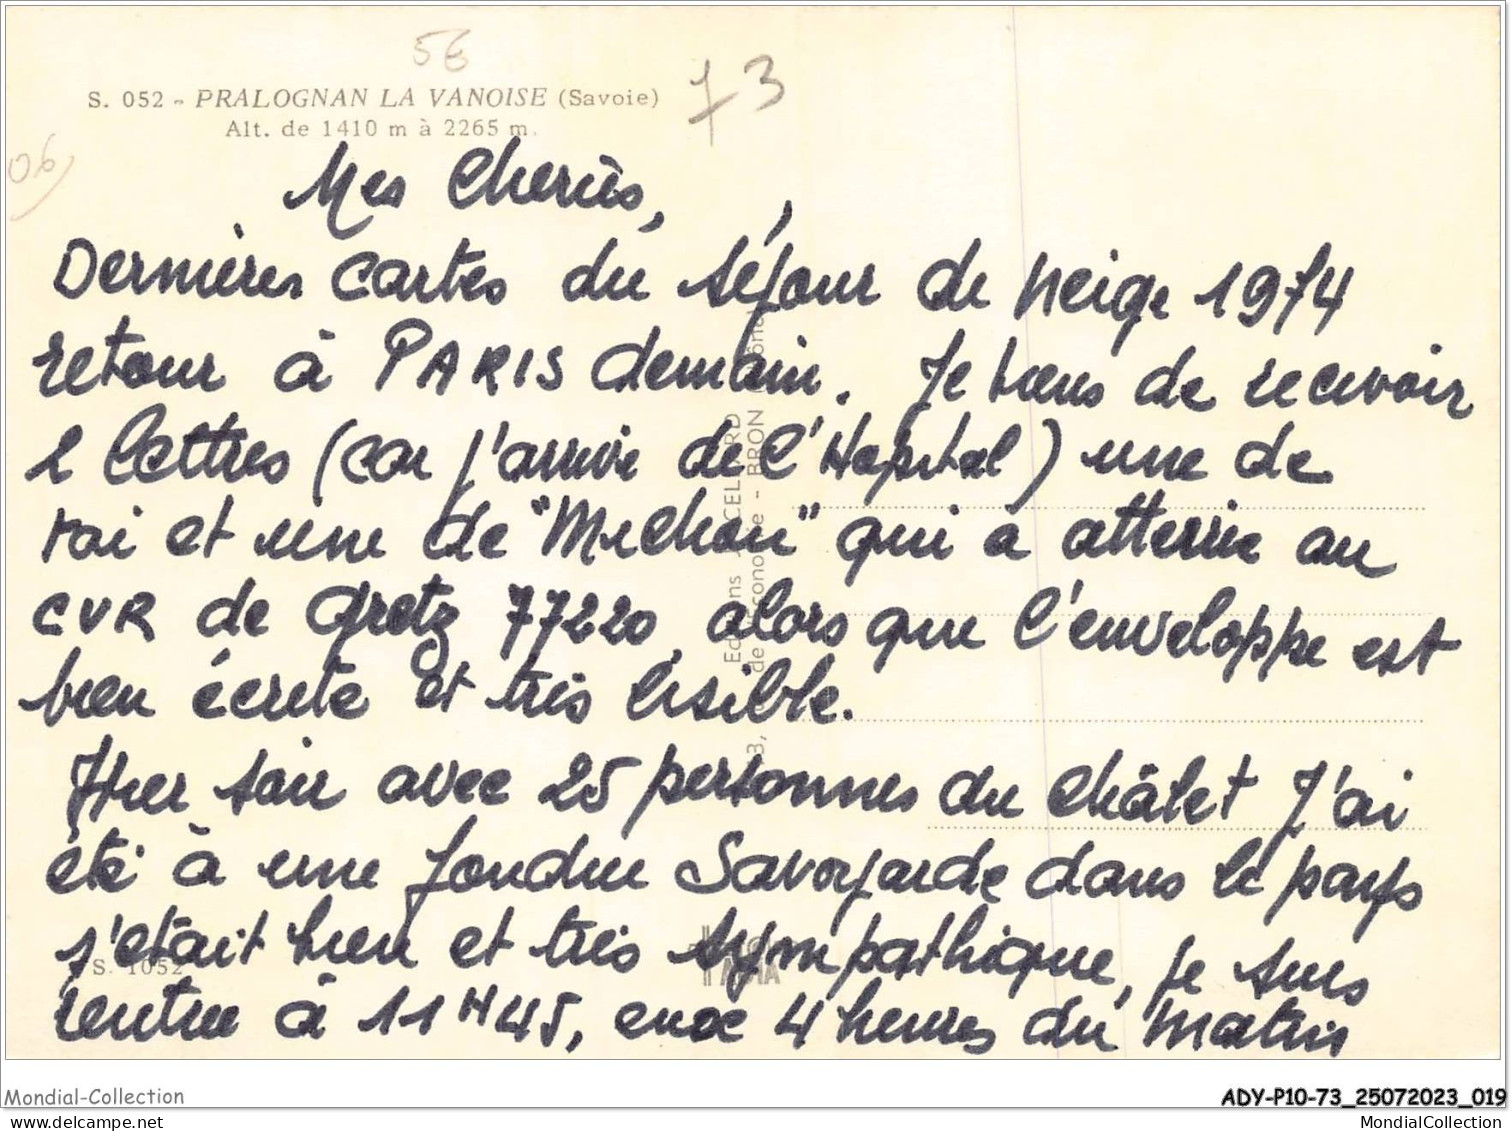 56
73
S. 052 - PRALOGNAN LA VANOISE (Savoie)
Alt. de 1410 m à 2265 m.
06)
Mes Cheriès,
Dernières cartes du séjour de neige 1974
retour à PARIS demain. Je viens de recevoir
2 lettres (car j'arrive de l'Hopital) une de
toi et une de "Michou" qui a atterrie au
CVR de Gretz 77220, alors que l'enveloppe est
bien écrite et très lisible.
Hier soir avec 25 personnes du châlet J'ai
été à une fondue Savoyarde dans le pays
s'était bien et très sympathique, je suis
rentrée à 11H45, eux 4 heures du matin
Editions J. CELLARD
BRON
S. 1052
Mondial-Collection
ADY-P10-73_25072023_019
MondialCollection